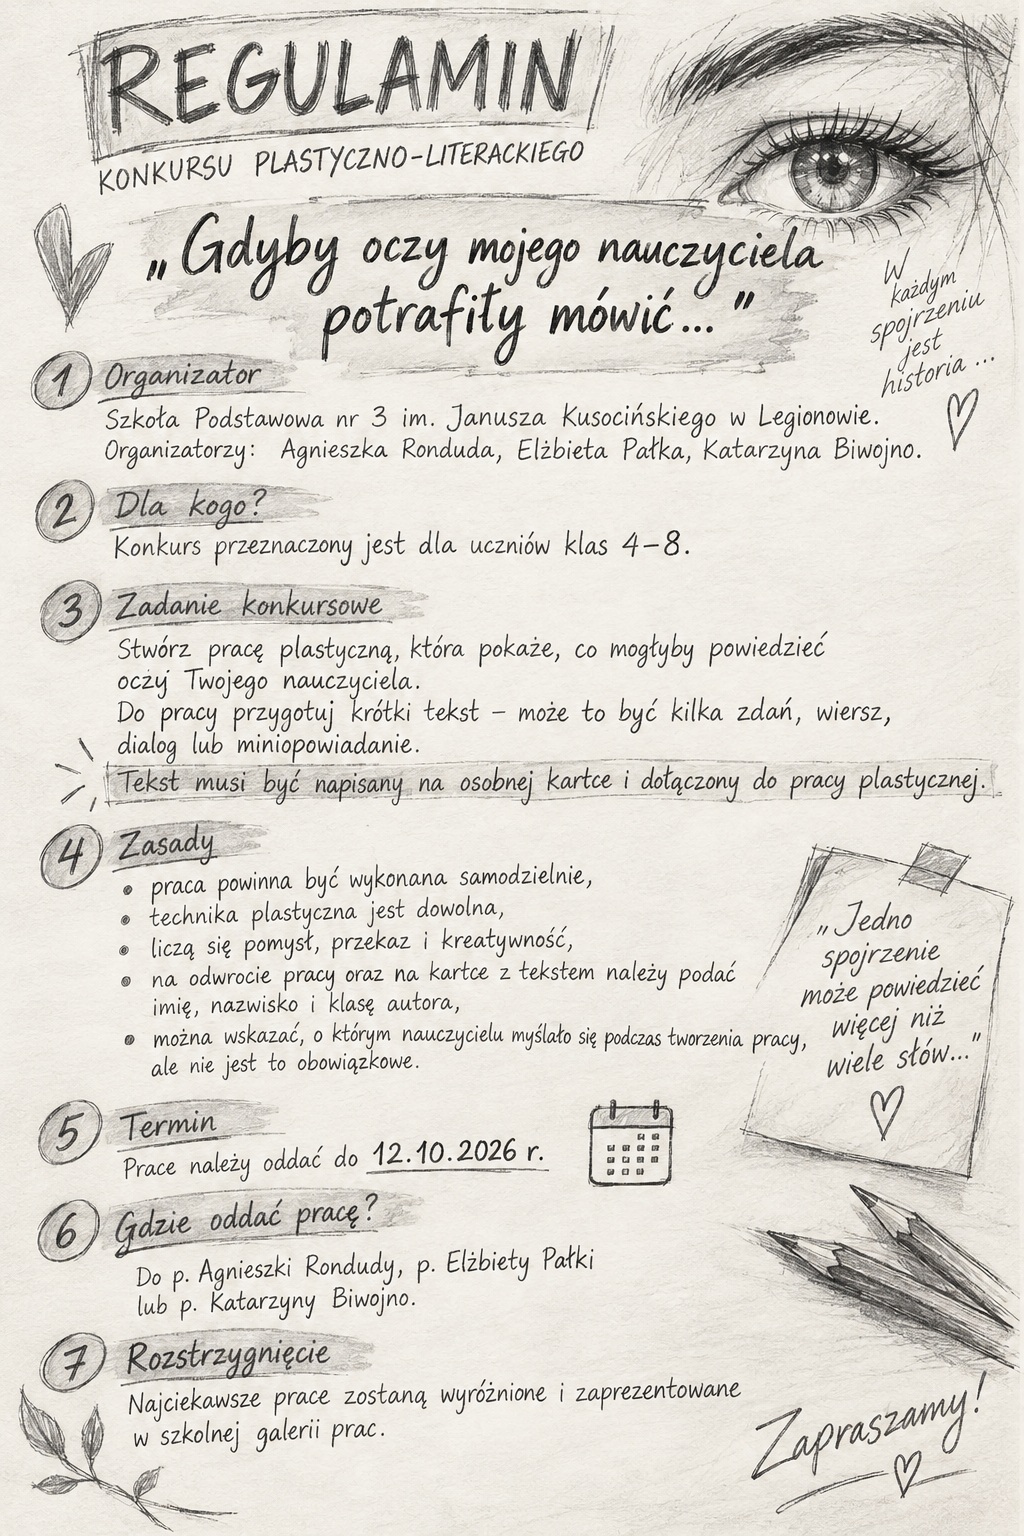 REGULAMIN
KONKURSU PLASTYCZNO-LITERACKIEGO
„Gdyby oczy mojego nauczyciela
potrafiły mówić... ”
W
każdym
spojrzeniu
jest
historia ...
1 Organizator
Szkoła Podstawowa nr 3 im. Janusza Kusocińskiego w Legionowie.
Organizatorzy: Agnieszka Ronduda, Elżbieta Pałka, Katarzyna Biwojno.
2 Dla kogo?
Konkurs przeznaczony jest dla uczniów klas 4–8.
3 Zadanie konkursowe
Stwórz pracę plastyczną, która pokaże, co mogłyby powiedzieć
oczy Twojego nauczyciela.
Do pracy przygotuj krótki tekst – może to być kilka zdań, wiersz,
dialog lub miniopowiadanie.
Tekst musi być napisany na osobnej kartce i dołączony do pracy plastycznej.
4 Zasady
• praca powinna być wykonana samodzielnie,
• technika plastyczna jest dowolna,
• liczą się pomysł, przekaz i kreatywność,
• na odwrocie pracy oraz na kartce z tekstem należy podać
imię, nazwisko i klasę autora,
• można wskazać, o którym nauczycielu myślało się podczas tworzenia pracy,
ale nie jest to obowiązkowe.
„Jedno
spojrzenie
może powiedzieć
więcej niż
wiele słów...”
5 Termin
Prace należy oddać do 12.10.2026 r.
6 Gdzie oddać pracę?
Do p. Agnieszki Rondudy, p. Elżbiety Pałki
lub p. Katarzyny Biwojno.
7 Rozstrzygnięcie
Najciekawsze prace zostaną wyróżnione i zaprezentowane
w szkolnej galerii prac.
Zapraszamy!